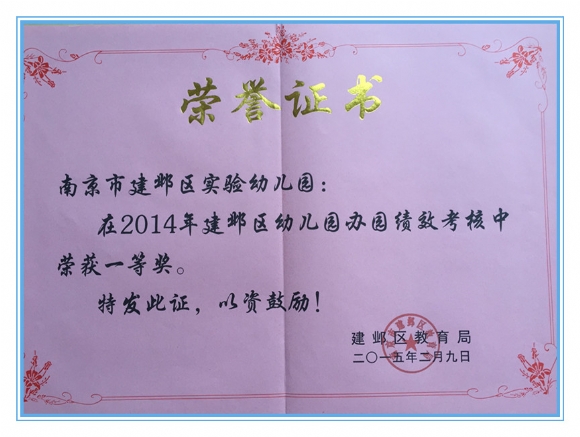 荣誉证书
南京市建邺区实验幼儿园：
在2014年建邺区幼儿园办园绩效考核中
荣获一等奖。
特发此证，以资鼓励！
建邺区教育局
二〇一五年二月九日